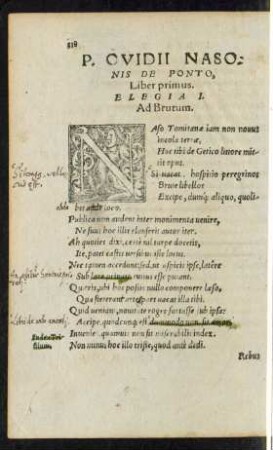 318
P. OVIDII NASO-
NIS DE PONTO,
Liber primus.
ELEGIA I.
Ad Brutum.
NAso Tomitanæ iam non nouus
incola terræ,
Hoc tibi de Getico littore mit-
tit opus.
Si uacat, hospitio peregrinos
Brute libellos
Excipe, dumq; aliquo, quoli-
bet abde loco.
Publica non audent inter monumenta uenire,
Ne suus hoc illis clauserit autor iter.
Ah quoties dixi, certè nil turpe docetis,
Ite, patet castis uersibus ille locus.
Non tamen accedunt: sed, ut aspicis ipse, latere
Sub lare priuato tutius esse putant.
Quæris, ubi hos possis nullo componere læso,
Qua steterant artes, pars uacat illa tibi.
Quid ueniant, nouitate roges fortasse sub ipsa:
Accipe, quodcunq; est, dummodo non sit amor.
Inuenies, quamuis non sit miserabilis index,
Non minus hoc illo triste, quod antè dedi.
Rebus